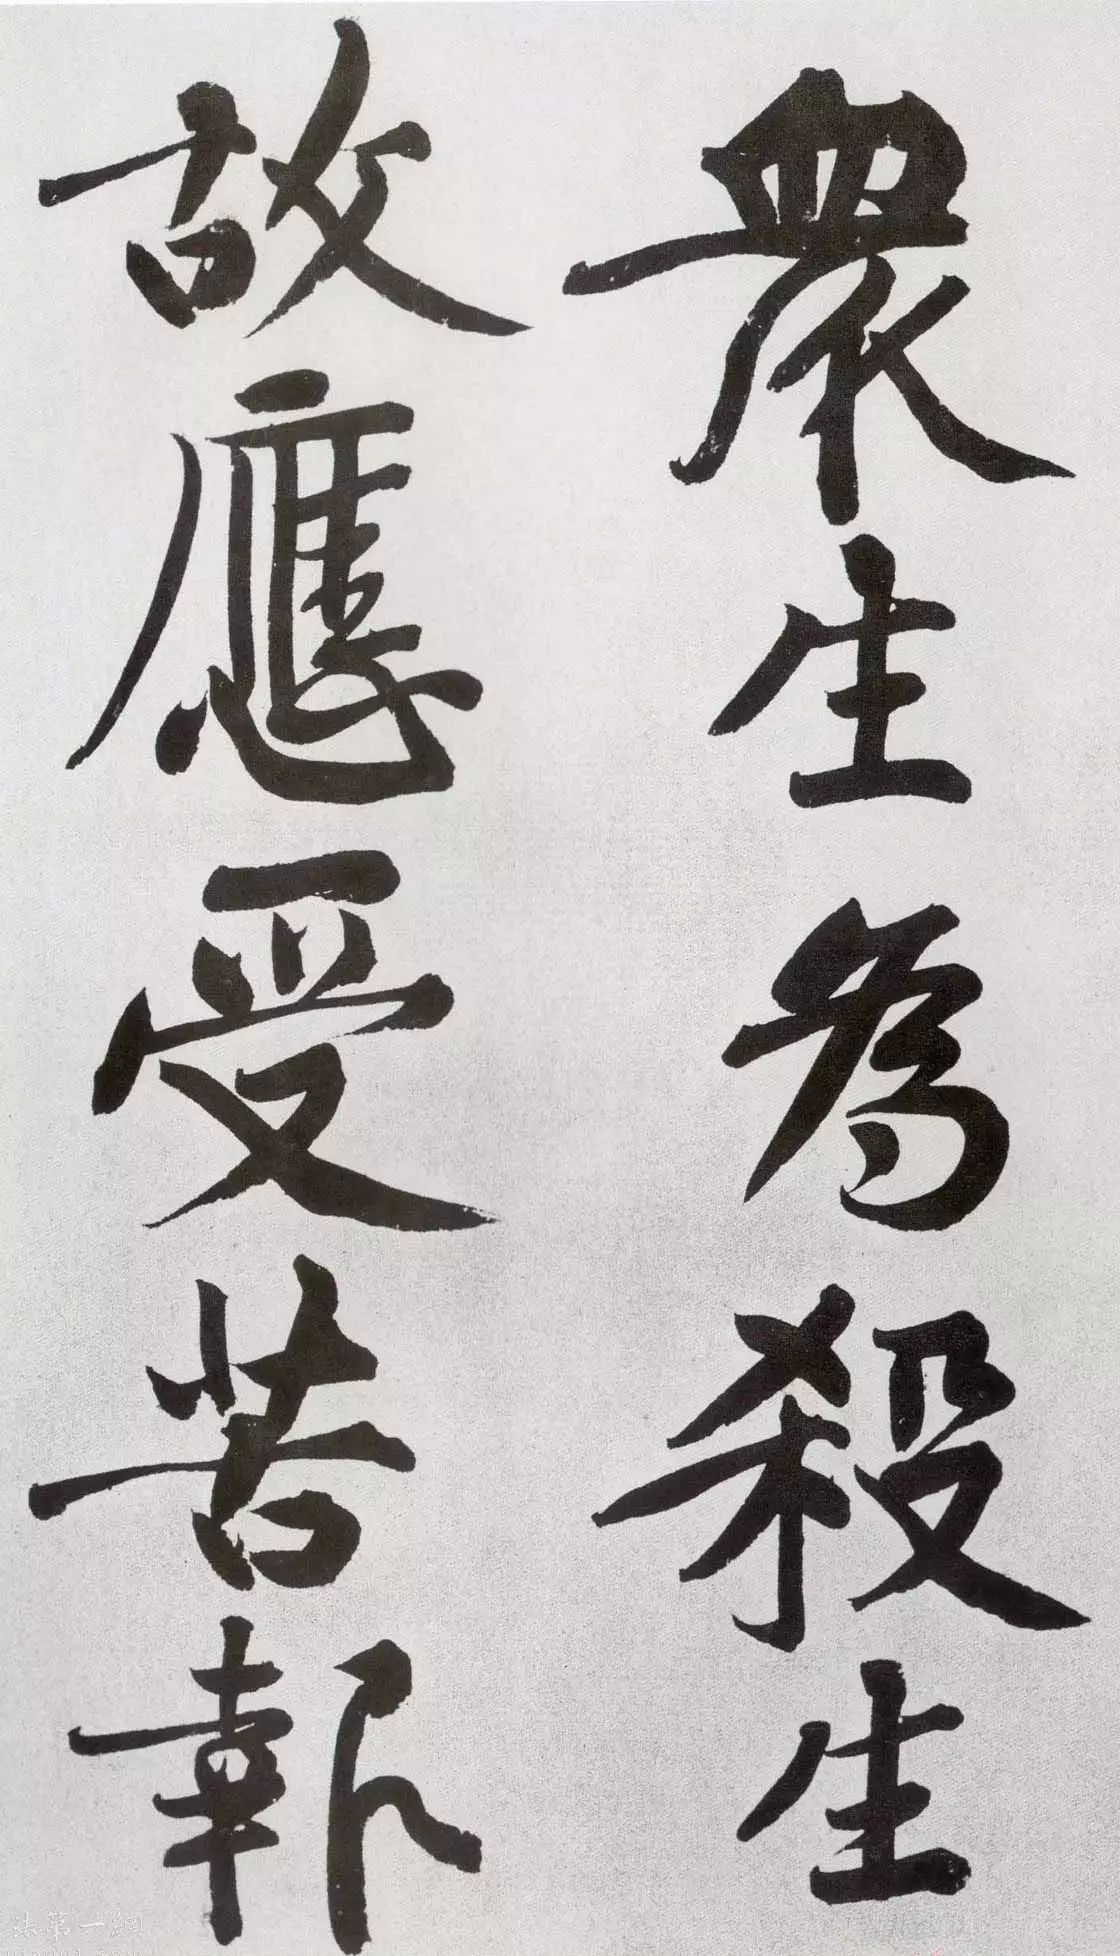 眾生為殺生
故應受苦報
法第一網